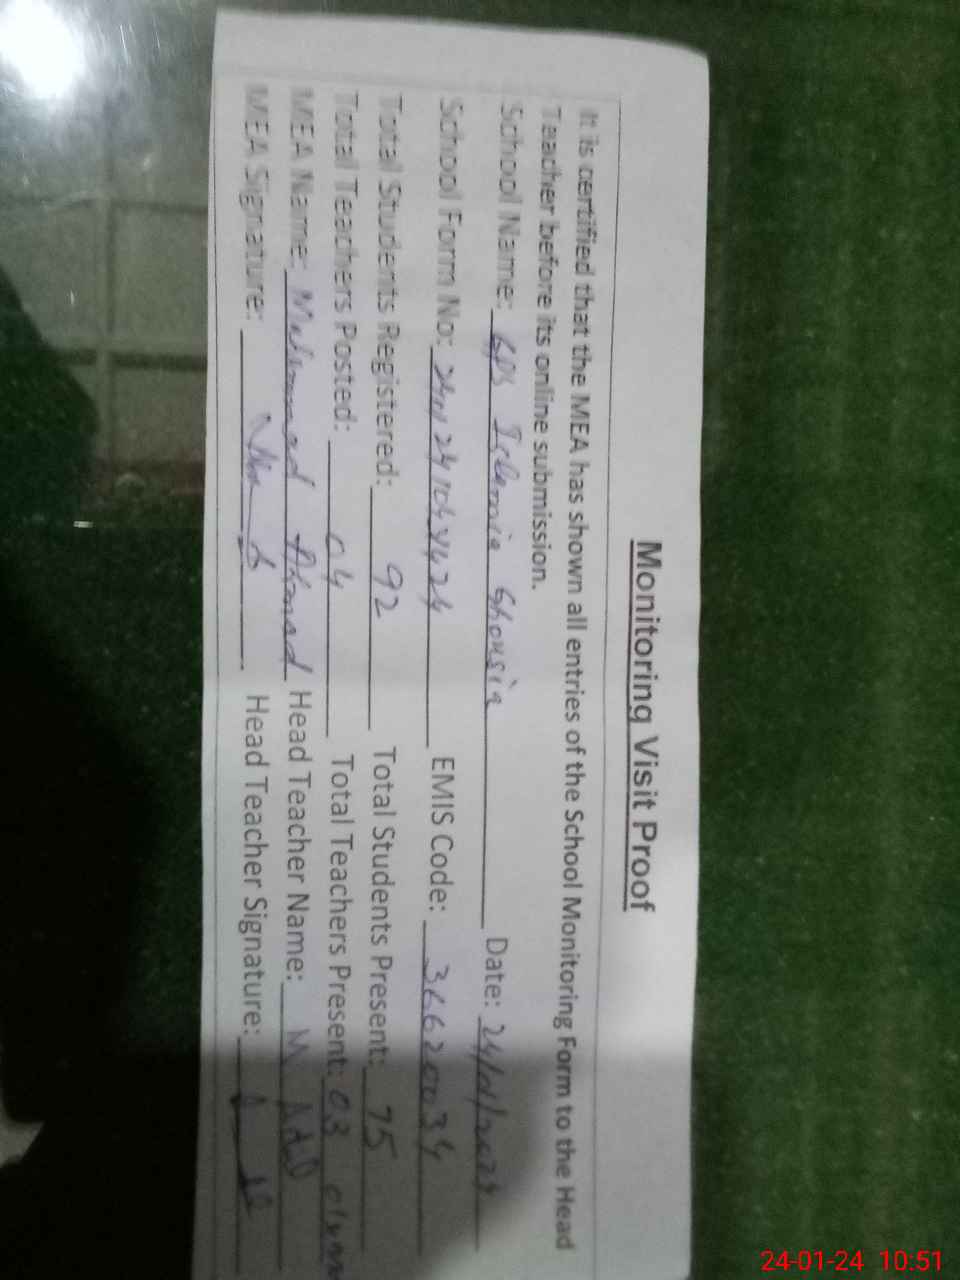 Monitoring Visit Proof
It is certified that the MEA has shown all entries of the School Monitoring Form to the Head
Teacher before its online submission.
School Name: GPS Islamia Ghousia Date: 24/01/2024
School Form No: EMIS Code: 36620034
Total Students Registered: 92 Total Students Present: 75
Total Teachers Posted: 04 Total Teachers Present: 03
MEA Name: Muhammad Ahmad Head Teacher Name: M
MEA Signature: Head Teacher Signature:
24-01-24 10:51